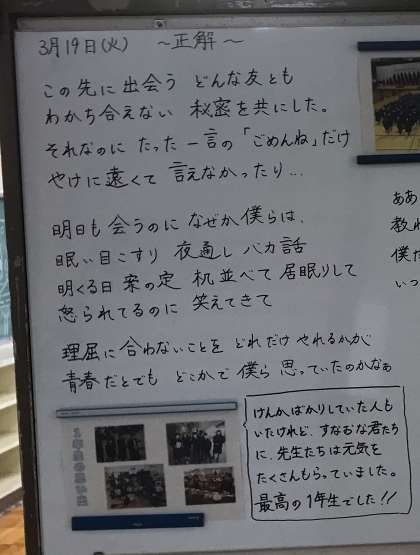 3月19日(火) ～正解～
この先に出会う どんな友とも
わかち合えない 秘密を共にした。
それなのに たった一言の「ごめんね」だけ
やけに遠くて 言えなかったり…
明日も 会うのに なぜか僕らは、
眠い目こすり 夜通し バカ話
明くる日 案の定 机並べて 居眠りして
怒られてるのに 笑えてきて
理屈に合わないことを どれだけ やれるかが
青春だとでも どこかで 僕ら 思っていたのかなぁ
ああ
教え
僕た
いつ
1年生の思い出
けんかばかりしていた人も
いたけれど、すなおな君たち
に、先生たちは元気を
たくさんもらっていました。
最高の1年生でした!!